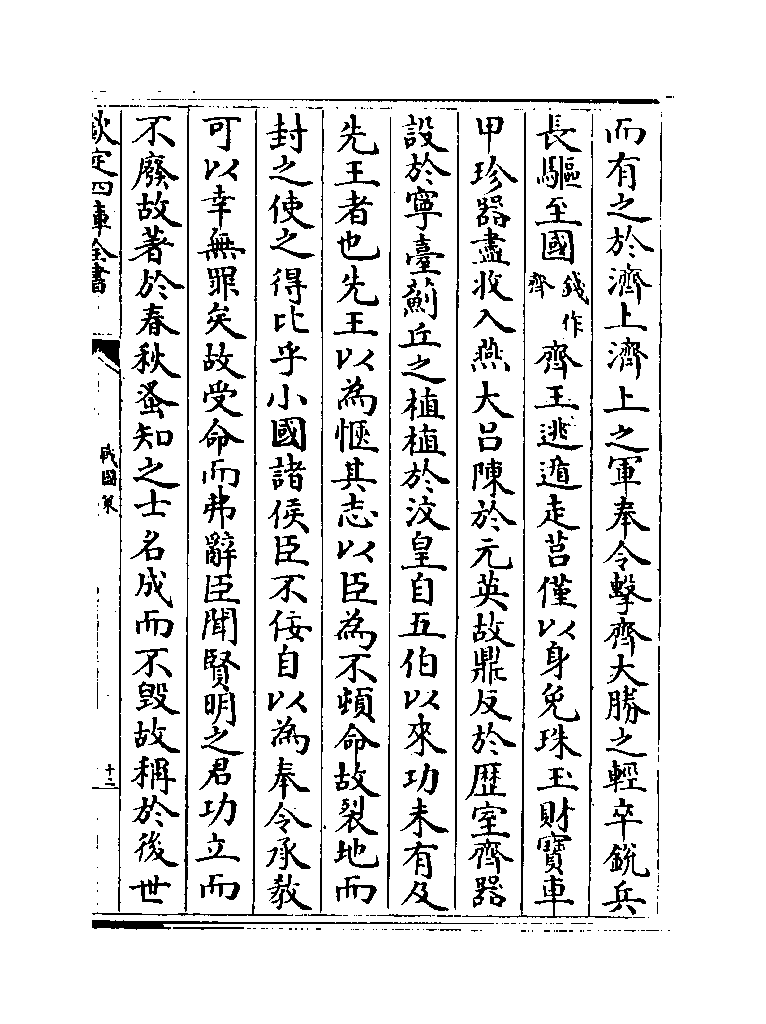 而有之於濟上濟上之軍奉令擊齊大勝之輕卒銳兵
長驅至國錢作齊齊王逃遁走莒僅以身免珠玉財寶車
甲珍器盡收入燕大呂陳於元英故鼎反於歴室齊器
設於寧臺薊丘之植植於汶皇自五伯以來功未有及
先王者也先王以為愜其志以臣為不頓命故裂地而
封之使之得比乎小國諸侯臣不佞自以為奉令承教
可以幸無罪矣故受命而弗辭臣聞賢明之君功立而
不廢故著於春秋蚤知之士名成而不毀故稱於後世
欽定四庫全書
戰國策
十二